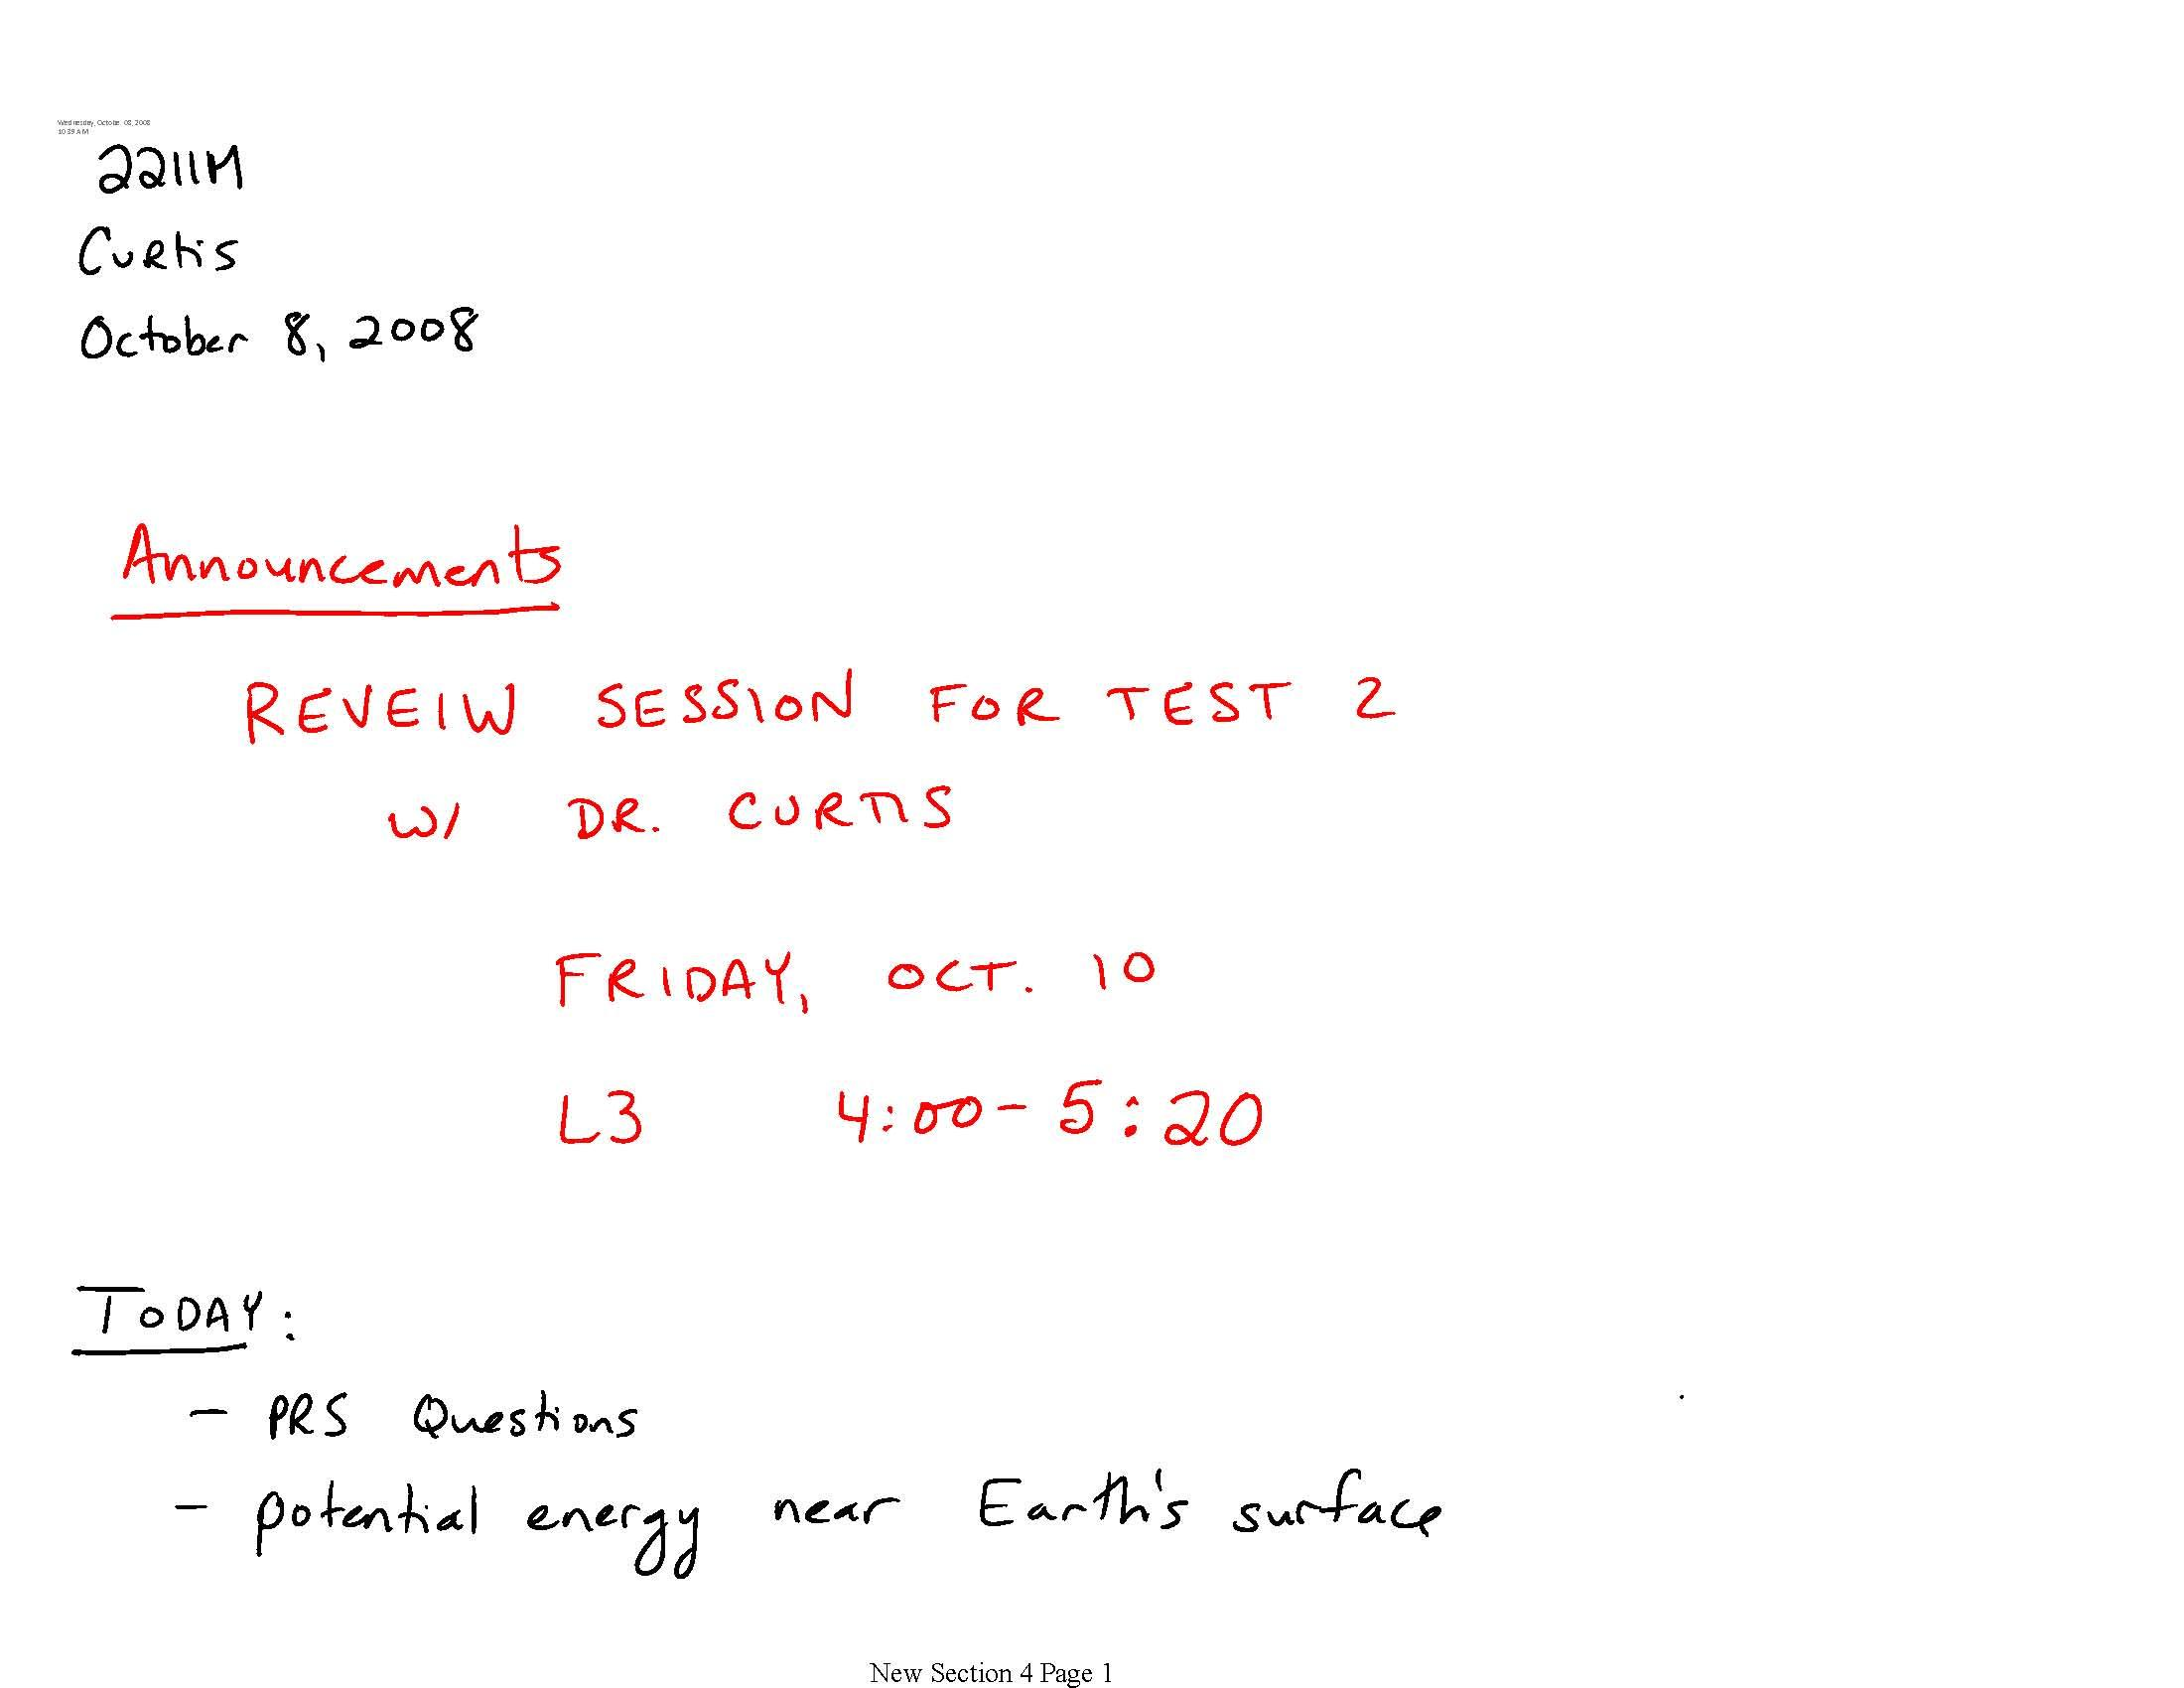 Wednesday, October 08, 2008
10:39 AM
2211M
Curtis
October 8, 2008
Announcements
REVEIW SESSION FOR TEST 2
W/ DR. CURTIS
FRIDAY, OCT. 10
L3 4:00 - 5:20
TODAY:
- PRS Questions
- potential energy near Earth's surface
New Section 4 Page 1